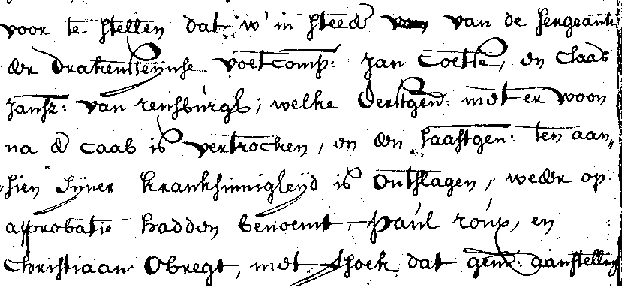 voor te stellen dat w' in steede van de sergeants
der drakensteijnse voetcomp: Jan Coetse, en Claas
Jansz: van rensburgh, welke eerstgen: met er woon
na de Caab is vertrocken, en den laastgen: ten aan,
sien sijner kranksinnigheijd is ontslagen, weder op
approbatie hadden benoemt, Paul roux, en
Christiaan Obregt, met versoek dat gem: aanstelling